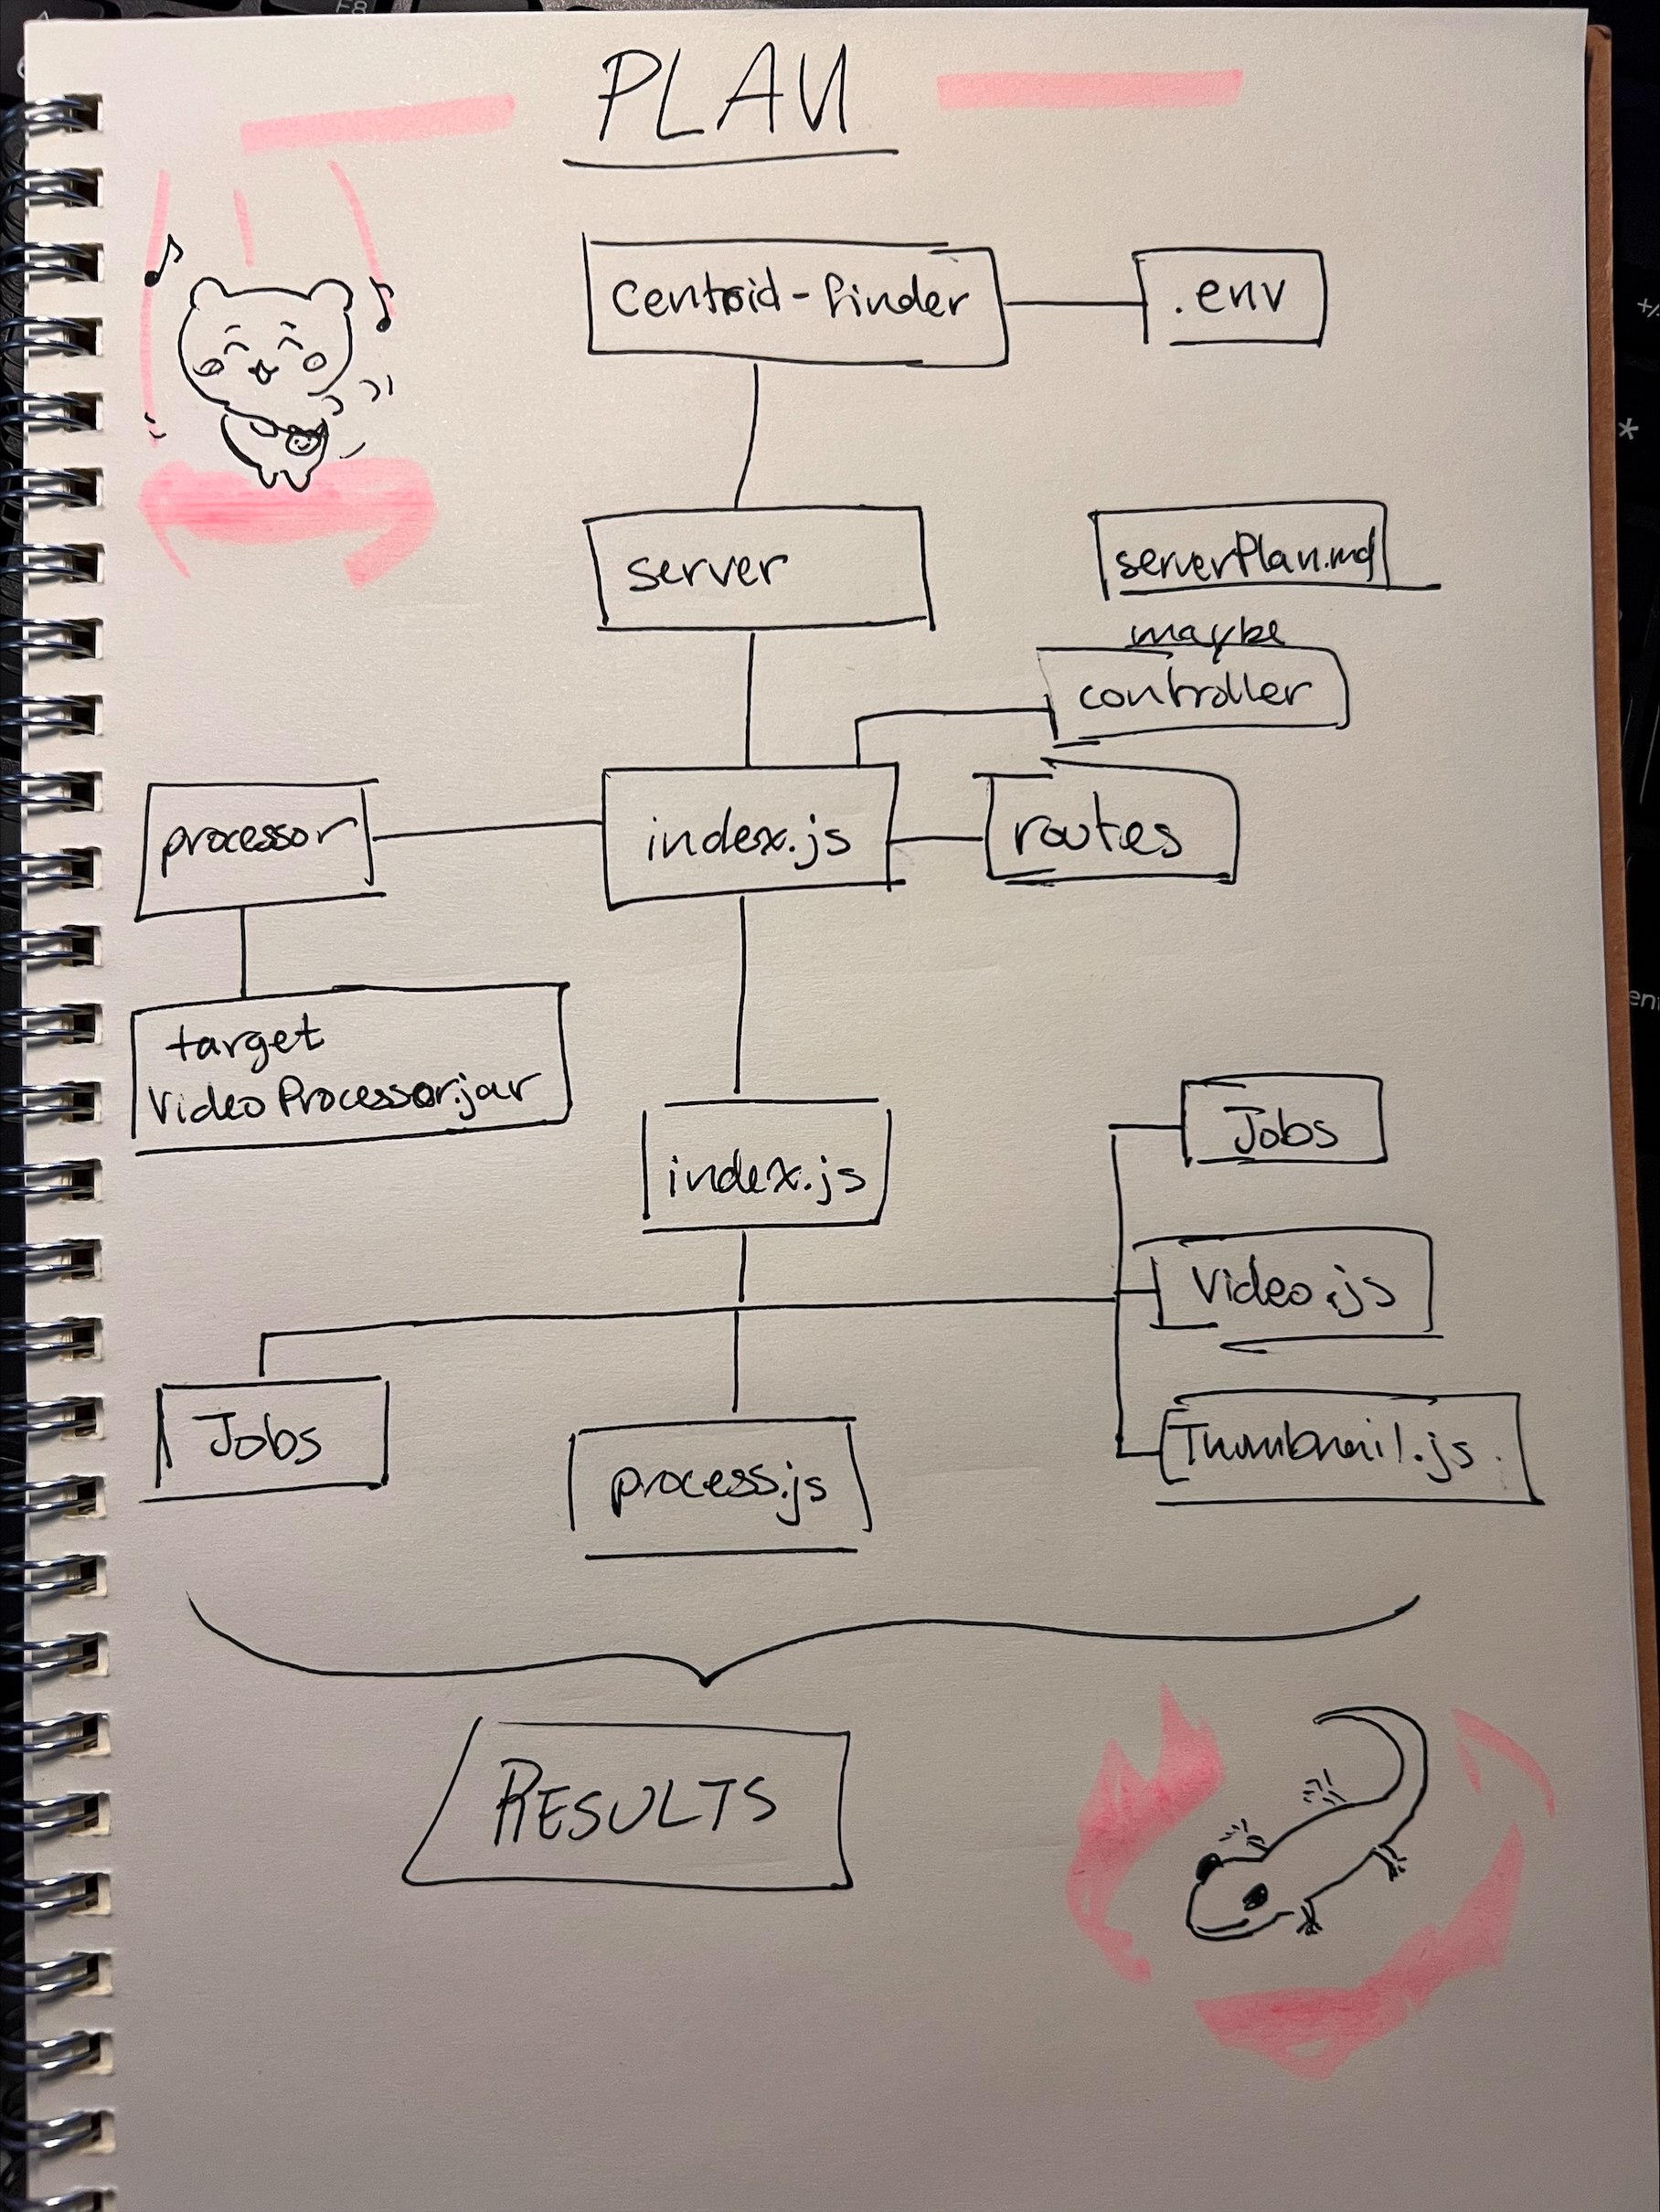 PLAN
centroid-finder
.env
server
serverPlan.md
maybe
controller
processor
index.js
routes
target
VideoProcessor.jar
index.js
Jobs
Video.js
Jobs
process.js
Thumbnail.js.
RESULTS
F8